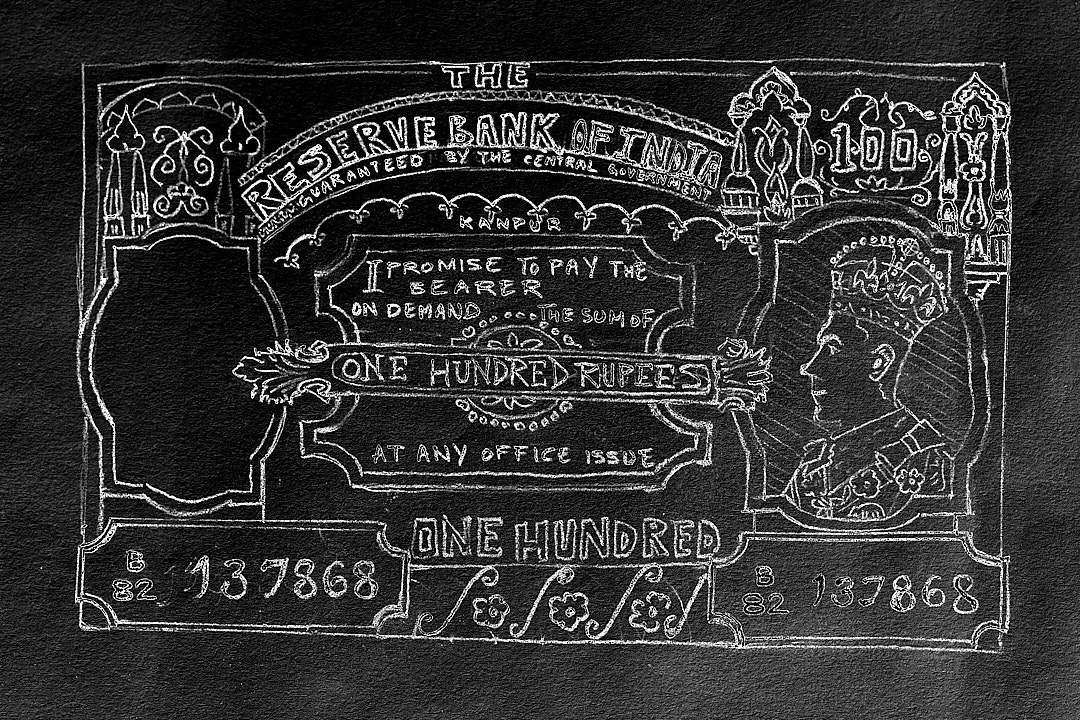 THE
RESERVE BANK OF INDIA
GUARANTEED BY THE CENTRAL GOVERNMENT
100
KANPUR
I PROMISE TO PAY THE
BEARER
ON DEMAND THE SUM OF
ONE HUNDRED RUPEES
AT ANY OFFICE ISSUE
ONE HUNDRED
B
82 137868
B
82 137868